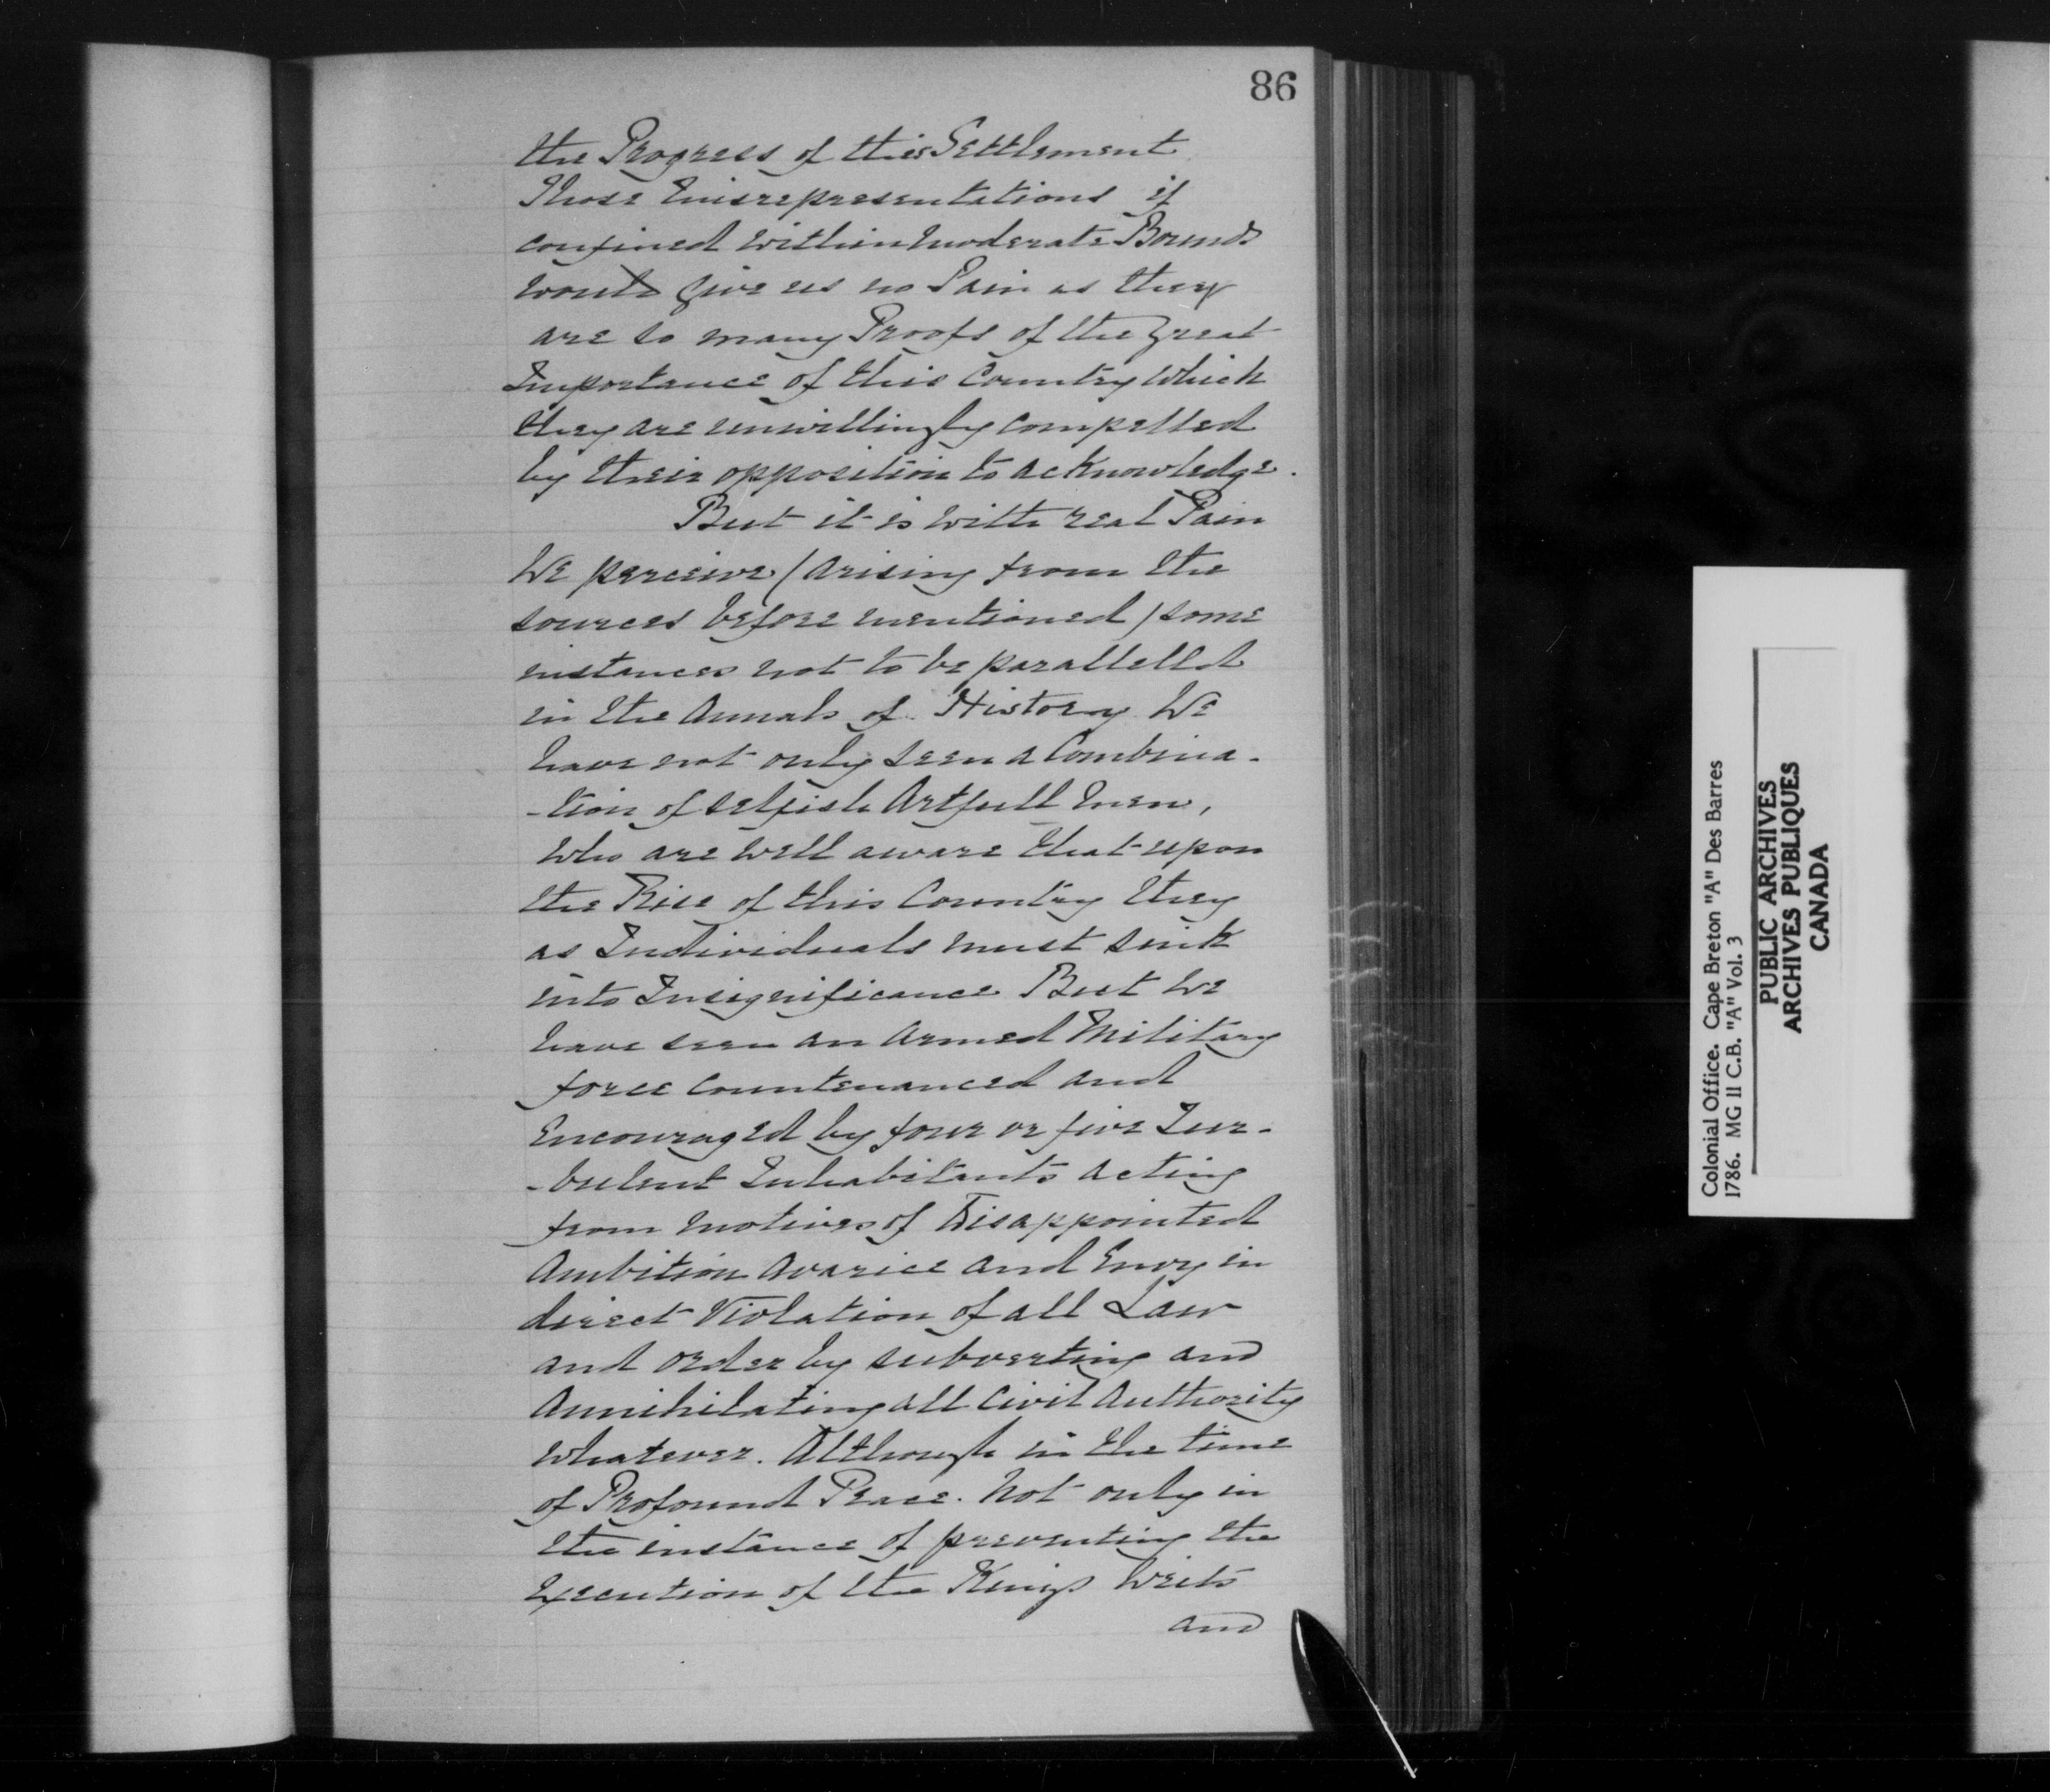 86
the Progress of this Settlement
Those misrepresentations if
confined within moderate Bounds
would give us no Pain as they
are so many Proofs of the great
Importance of this Country which
they are unwillingly compelled
by their opposition to acknowledge.
But it is with real Pain
We perceive (arising from the
sources before mentioned) some
instances not to be parallelled
in the Annals of History We
have not only seen a Combina-
-tion of selfish Artfull men,
who are well aware that upon
the Rise of this Country they
as Individuals must sink
into Insignificance But we
have seen an armed Military
force countenanced and
Encouraged by four or five Tur-
-bulent Inhabitants acting
from motives of Disappointed
Ambition Avarice and Envy in
direct Violation of all Law
and order by subverting and
Annihilating all Civil Authority
whatever. Although in the time
of Profound Peace. Not only in
the instance of preventing the
Execution of the Kings Writs
and
Colonial Office. Cape Breton "A" Des Barres
1786. MG 11 C.B. "A" Vol. 3
PUBLIC ARCHIVES
ARCHIVES PUBLIQUES
CANADA